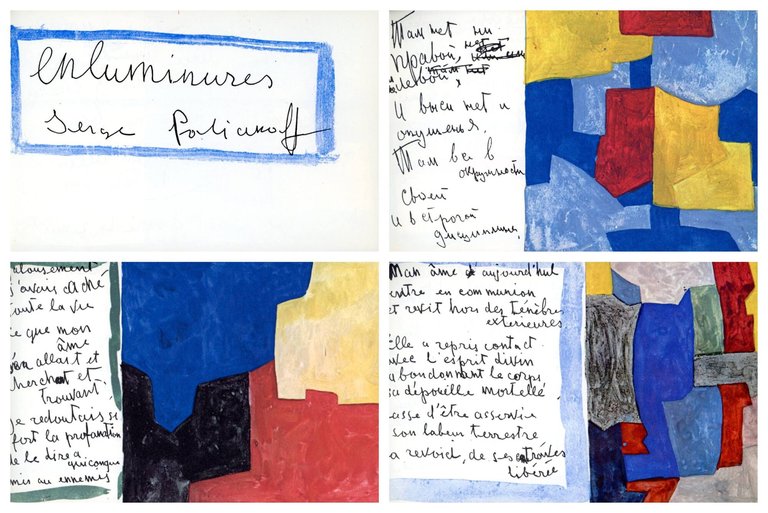 enluminures
Serge Poliakoff
Там нет ни
правой, нет
левой,
И выси нет и
опущенья.
Там все в
окружности
своей
и в строгой
дисциплине.
Jalousement
j'avais caché
toute la vie
ce que mon
âme
en allait et
cherchant et
trouvant.
Je redoutais si
fort la profanation
de le dire à quiconque
amis ou ennemis
Mon âme d'aujourd'hui
entre en communion
et revit hors des ténèbres
extérieures
Elle a repris contact
avec l'esprit divin
abandonnant le corps
sa dépouille mortelle
lasse d'être asservie
son labeur terrestre
la revoici, de ses entraves
libérée